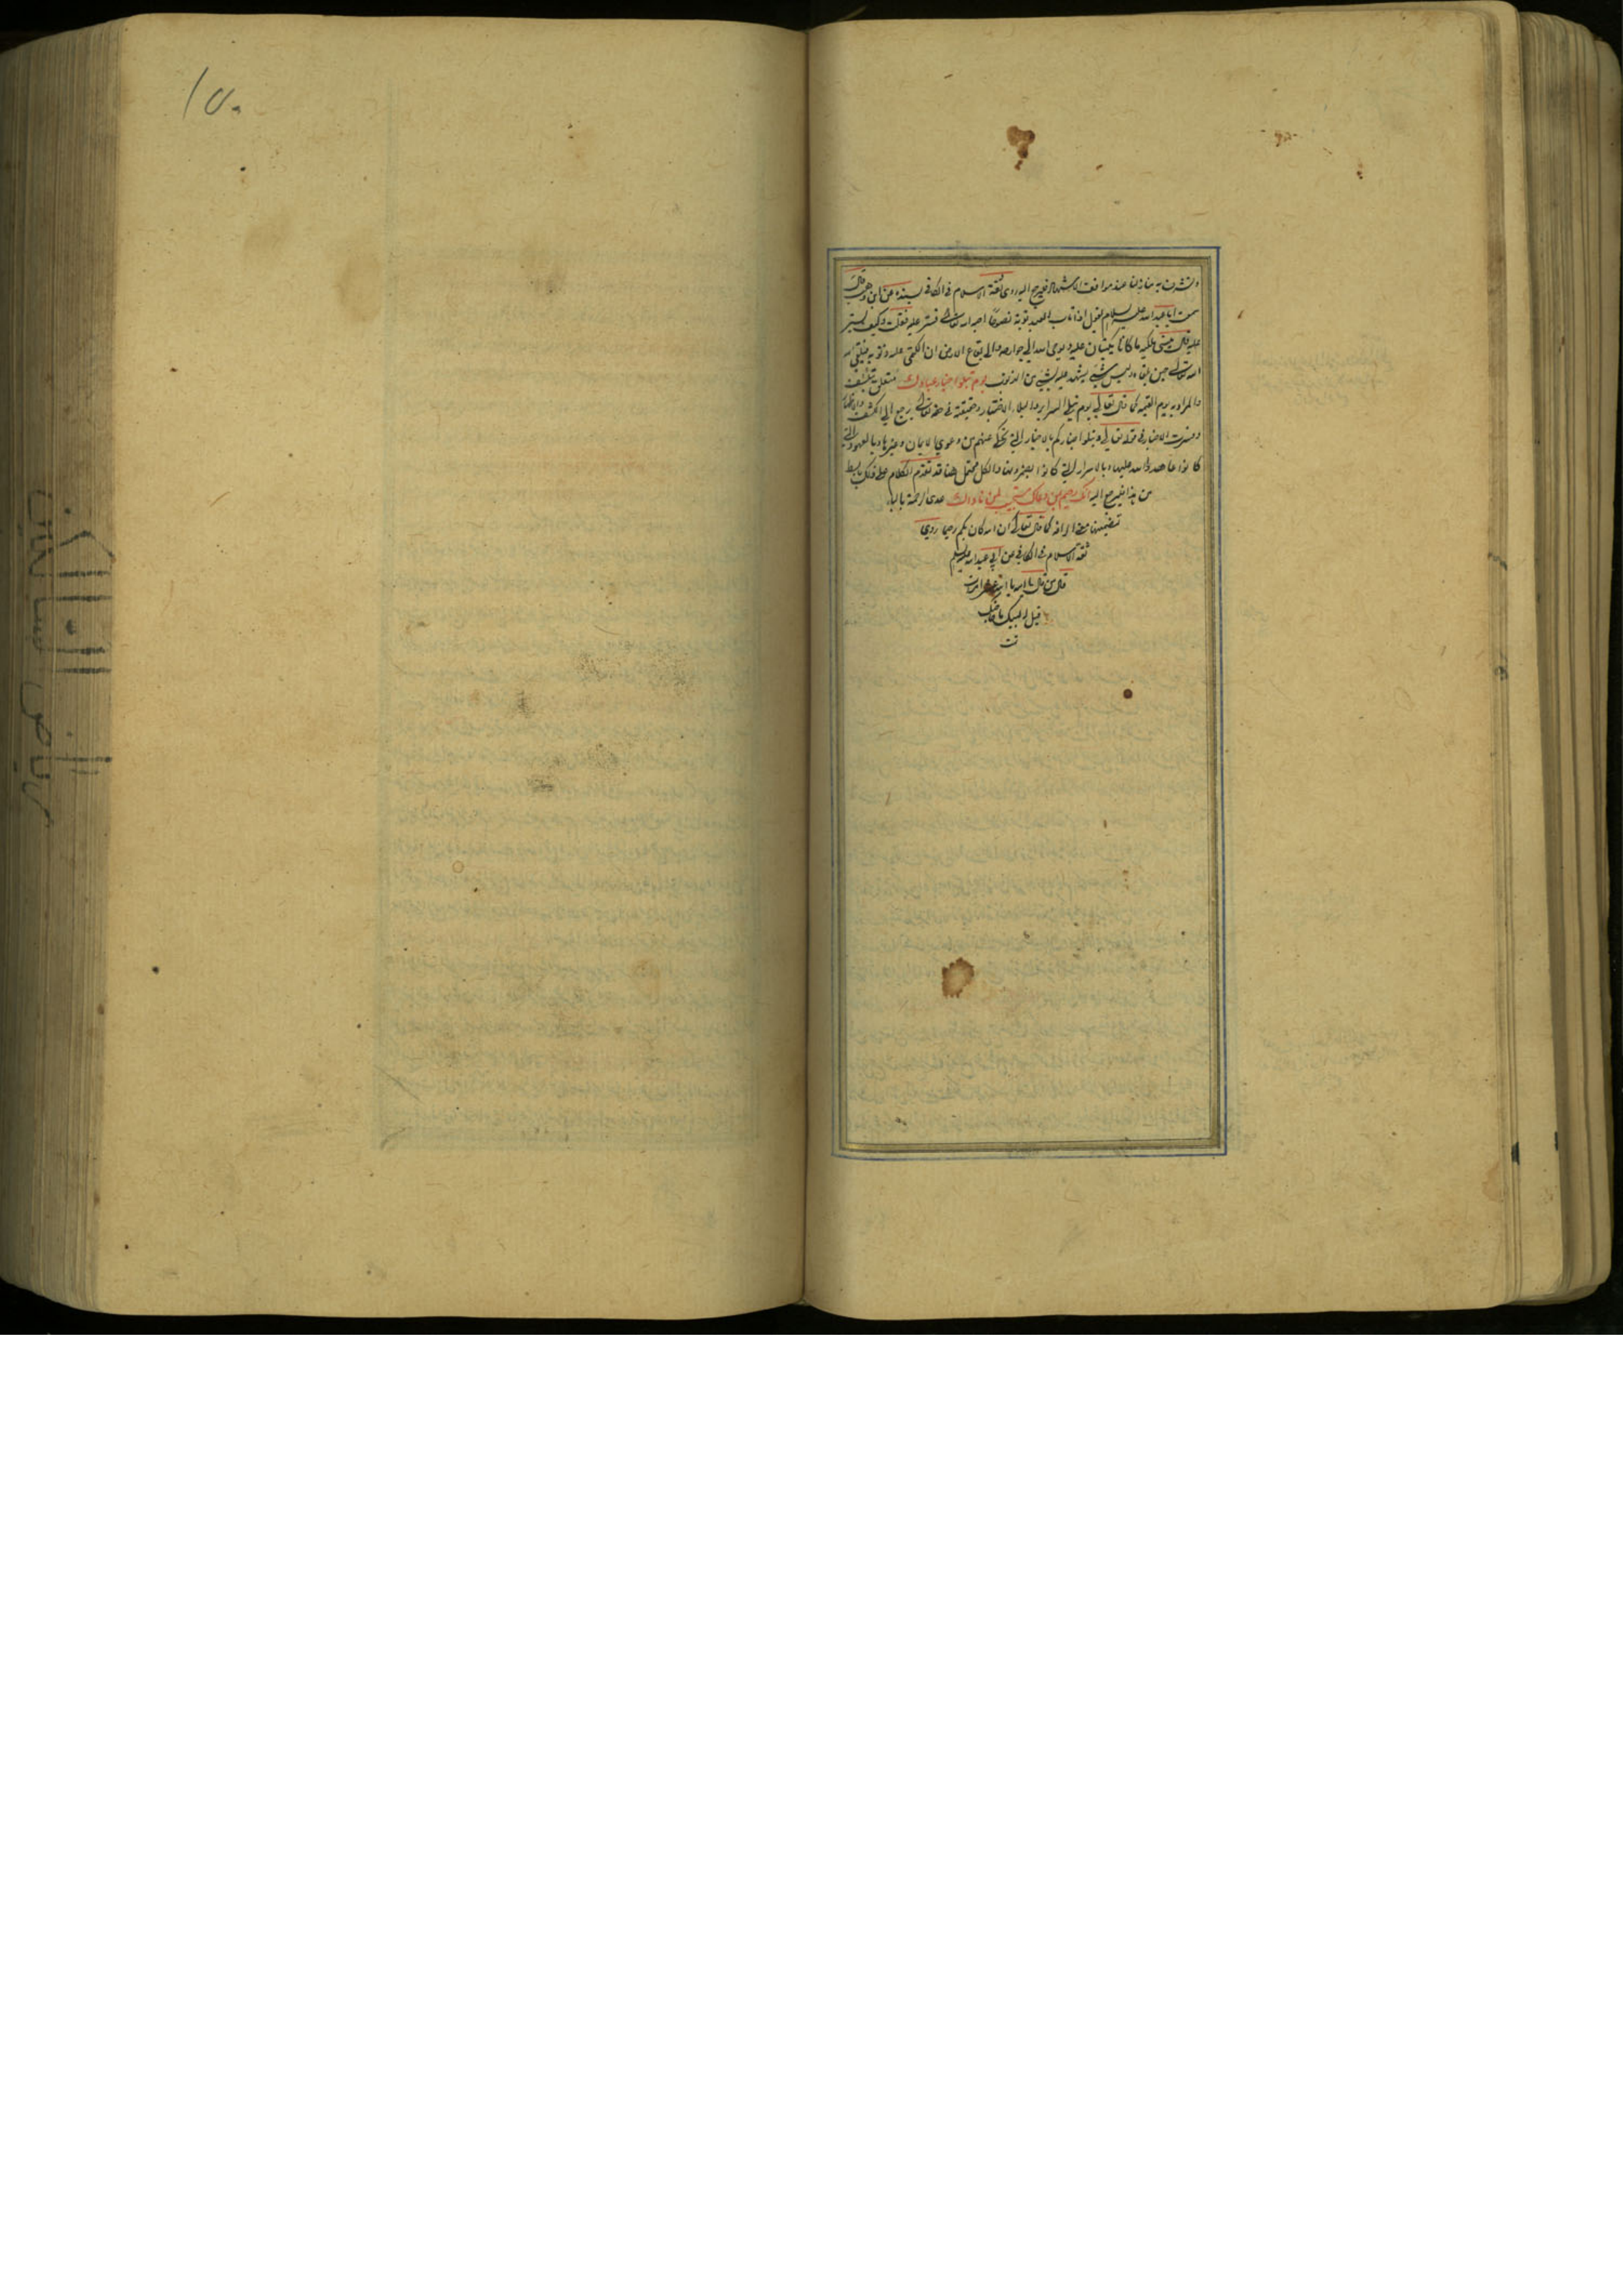 وتشرف به منازلنا عند مواقف الاشهاد فليرجع اليه روى ثقة الاسلام في الكافي بسنده عن ابن وهب قال
سمعت ابا عبدالله عليه السلام يقول اذا تاب العبد توبة نصوحا احبه الله تعالى فستر عليه فقلت وكيف يستر
عليه قال ينسي ملكيه ما كانا يكتبان عليه ويوحى الله الى جوارحه والى بقاع الارض ان اكتمي عليه ذنوبه فيلقى الله
الله تعالى حين يلقاه وليس شيء يشهد عليه بشيء من الذنوب يوم تبلوا اخبار عبادك متعلق بتكشف
والمراد به يوم القيمة كما قال تعالى يوم تبلى السرائر والبلاء الاختبار وحقيقته في حقه تعالى يرجع الى الكشف والاظهار
وفسرت الاخبار في قوله تعالى ونبلوا اخباركم بالاخبار التي تحكى عنهم من دعوى الايمان وغيرها وبالعهود التي
كانوا عاهدوا الله عليها وبالاسرار التي كانوا والكل محتمل هنا وقد تقدم الكلام على ذلك بابسط
من هذا فليرجع اليه انك رحيم بمن دعاك مستجيب لمن ناداك عدى الرحمة بالباء
تضمينها معنى الرافة كما قال تعالى ان الله كان بكم رحيما روى
ثقة الاسلام في الكافي عن ابي عبدالله عليه السلم
قال من قال يا الله يا الله عشر مرات
قيل له لبيك ما حاجتك
تمت
١٥٠